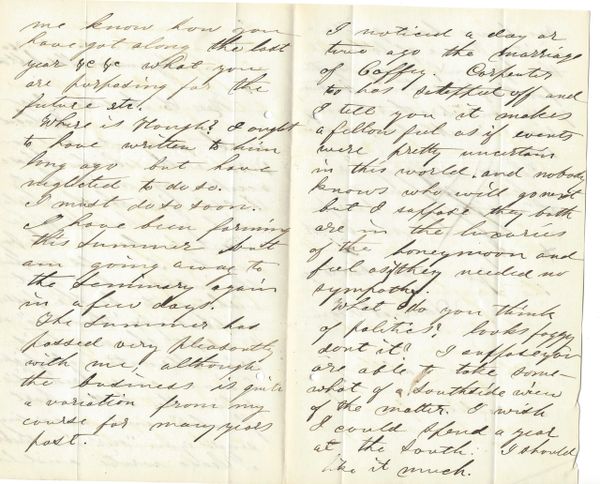 me know how you
have got along the last
year &c &c what you
are purposing for the
future etc.
Where is Hough? I ought
to have written to him
long ago but have
neglected to do so.
I must do so soon.
I have been farming
this summer but
am going away to
the Seminary again
in a few days.
The summer has
passed very pleasantly
with me, although
the business is quite
a variation from my
course for many years
past.
I noticed a day or
two ago the marriage
of Coffey. Carpenter
to has stepped off and
I tell you it makes
a fellow feel as if events
were pretty uncertain
in this world. and nobody
knows who will go next
but I suppose they both
are in the luxuries
of the honeymoon and
feel as if they needed no
sympathy.
What do you think
of politics? looks foggy
dont it? I suppose you
are able to take some-
what of a Southside view
of the matter. I wish
I could spend a year
at the South. I should
like it much.